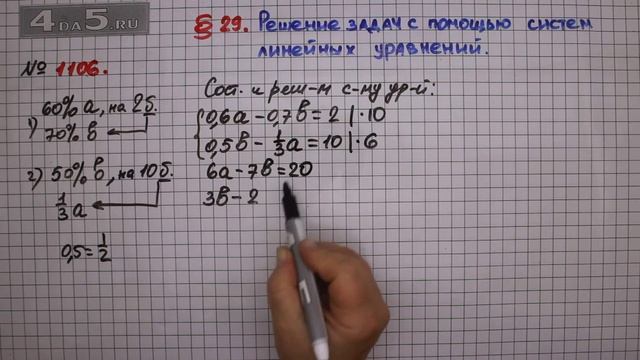 4DA5.RU
§ 29. Решение задач с помощью систем
линейных уравнений.
№ 1106.
1) 60% a, на 2б.
70% в
2) 50% в, на 10б.
1/3 a
0,5 = 1/2
Сост. и реш-м с-му ур-й:
0,6a - 0,7в = 2 | · 10
0,5в - 1/3 a = 10 | · 6
6a - 7в = 20
3в - 2